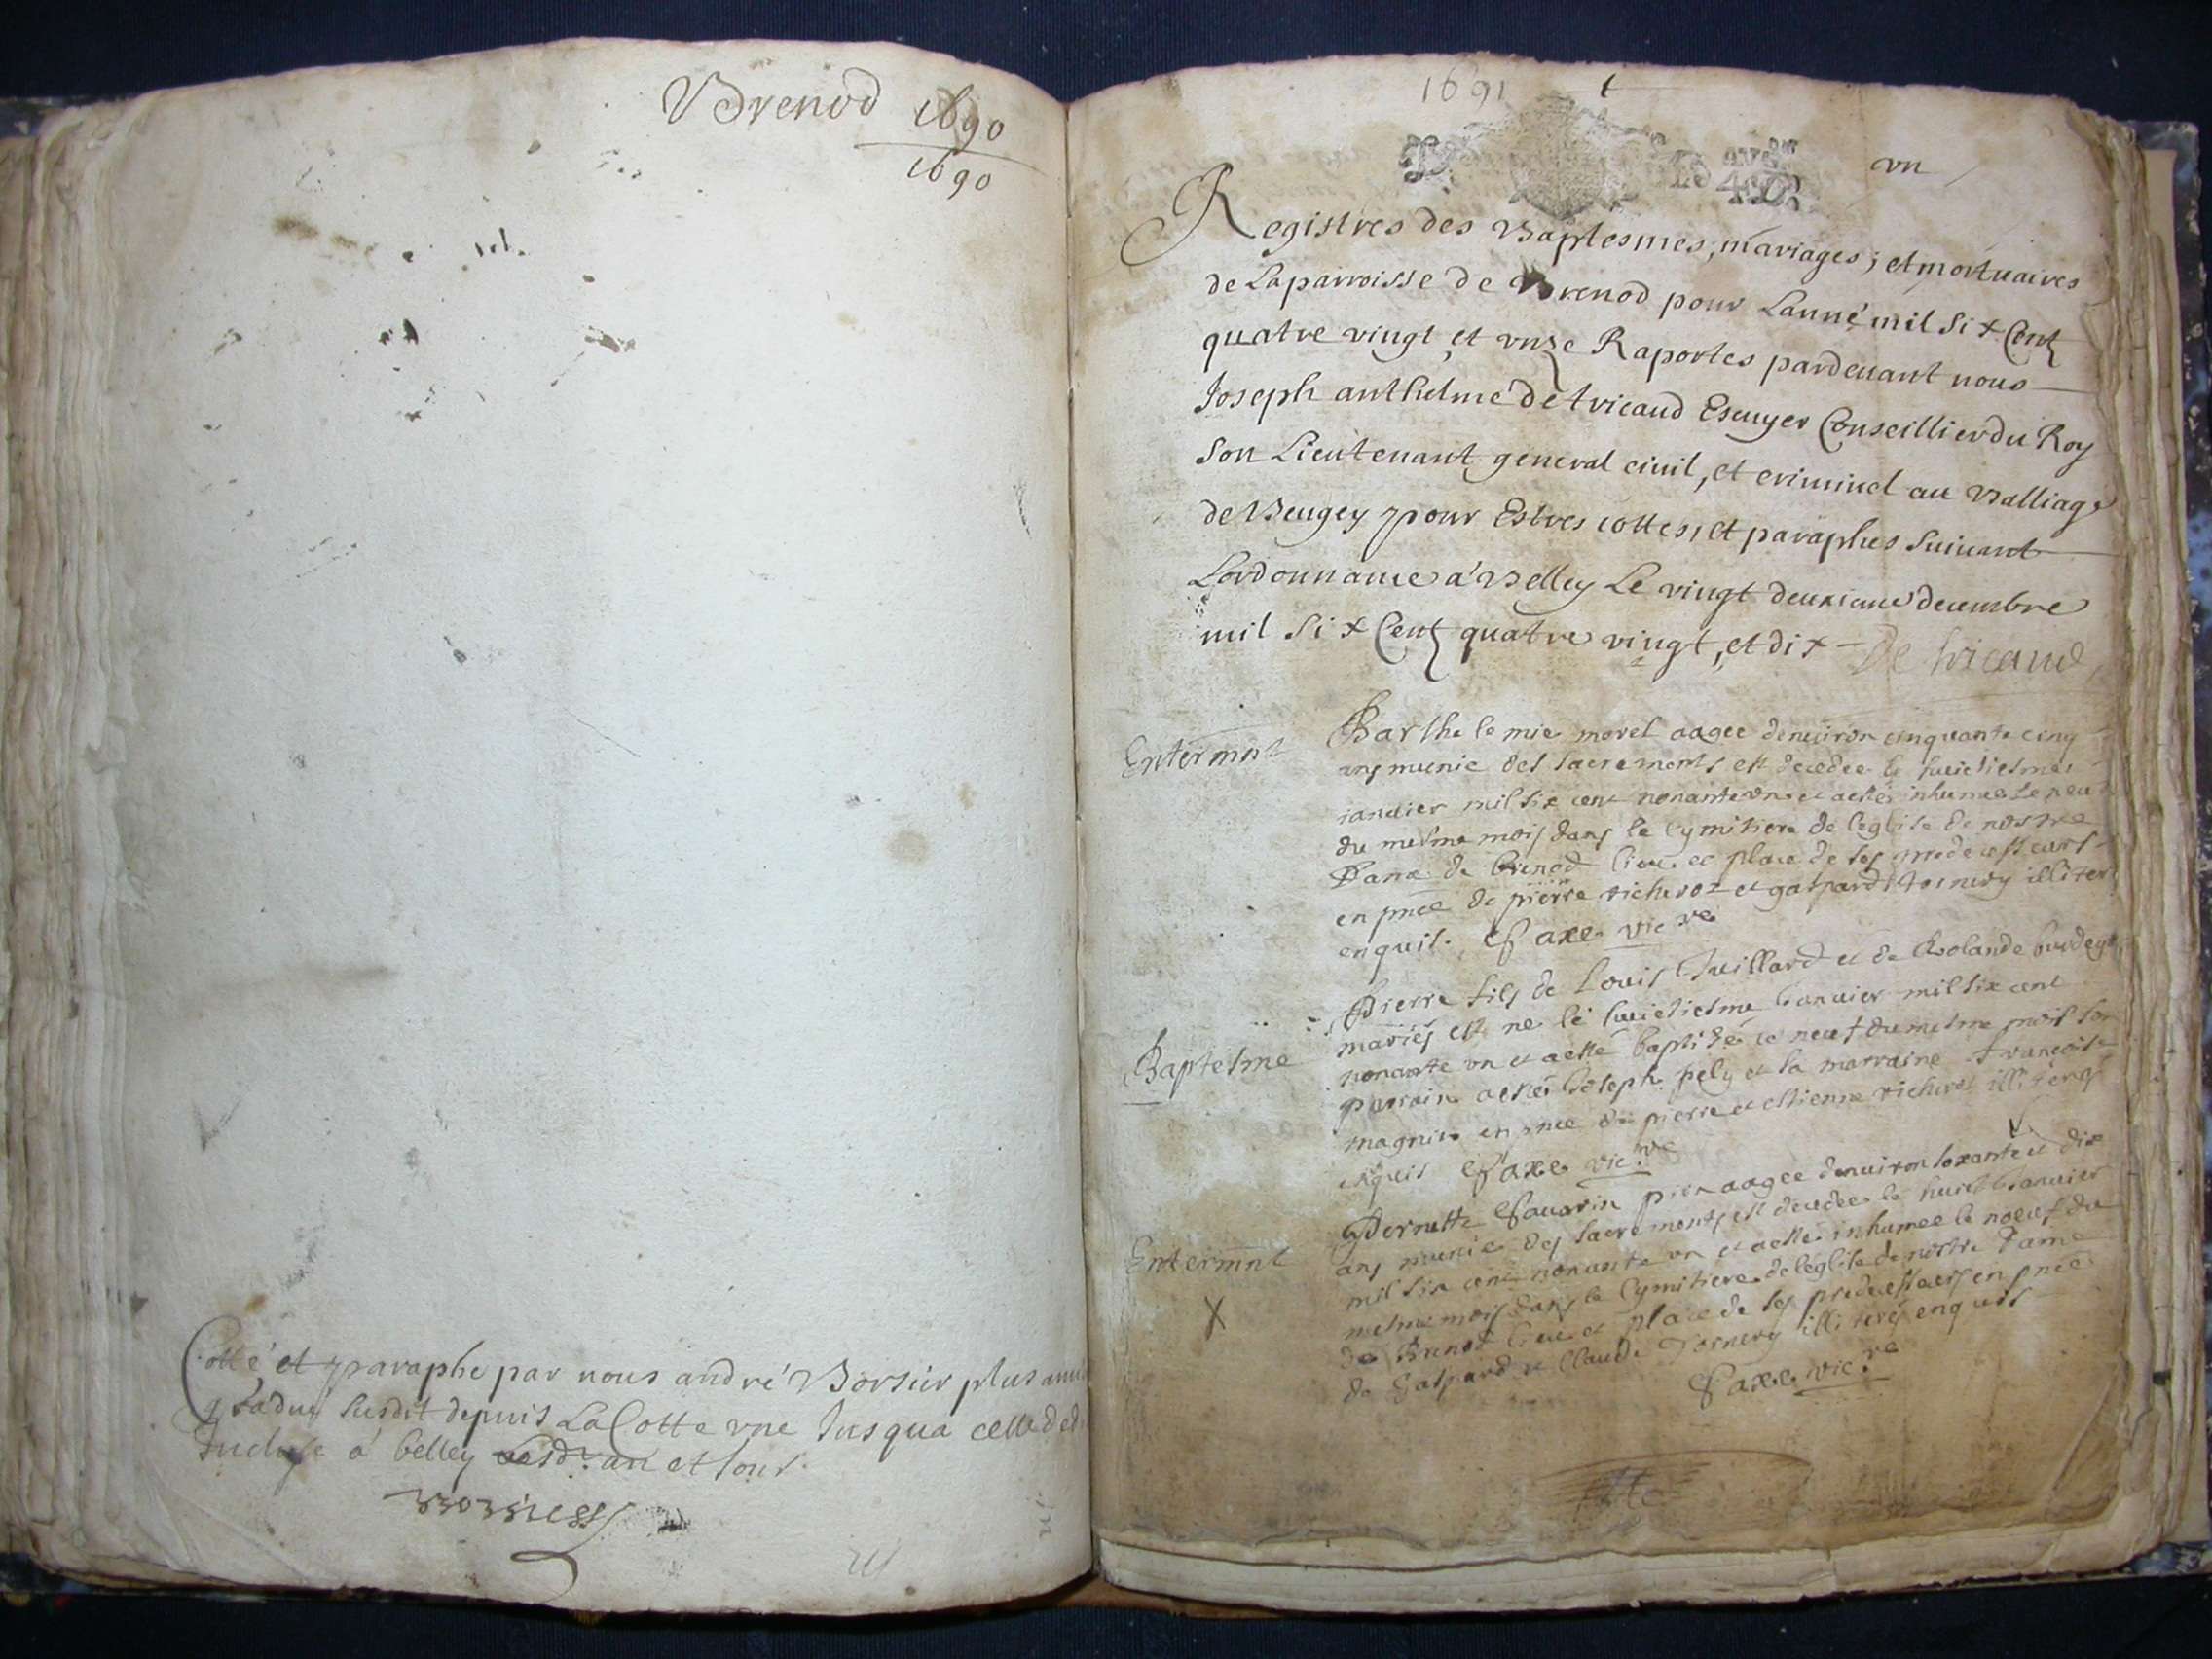 Brenod 1690
1690
Cotté et paraphe par nous andré Borsier plus
susdit depuis La Cotte une Jusqua celle de
Incluse a belley et jour
1691
vn
Registres des Baptesmes, mariages, et mortuaires
de La parroisse de Brenod pour Lanné mil Six Cent
quatre vingt et vnze Raportes pardeuant nous
Joseph anthelme de tricaud Escuyer Conseillier du Roy
Son Lieutenant general ciuil, et criminel au Balliage
de Beugey pour Estres cottes, et paraphes Suiuant
Lordonnance a Belley Le vingt deuxieme decembre
mil Six Cent quatre vingt, et dix De tricaud
Entermnt
Barthelemie morel aagee denuiron cinquante cinq
ans munie des sacrements est decedee le huictiesme
ianuier mil six cent nonante vn et a esté inhumee le neuf
du mesme mois dans le Cymitiere de leglise de nostre
Dame de brenod lieu et place de ses predecesseurs
en pnce de pierre richerot et gaspard tornery illiter
enquis. faxe vic re
Baptesme
Pierre fils de Louis Juillard et de Rolande
mariés est ne le huictiesme Januier mil six cent
nonante vn et a esté baptisé le neuf du mesme mois son
parrain a esté Joseph pely et la marraine francoise
magnin en pnce de pierre et estienne richerot illiterés
enquis faxe vic re
Entermnt
X
Pernette fauarin aagee denuiron soxante et dix
ans munie des sacrements est decedee le huict Januier
mil six cent nonante vn et a esté inhumee le noeuf du
mesme mois dans le Cymitiere de léglise de nostre Dame
de Brenod lieu et place de ses predecesseurs en pnce
de Gaspard et Claude Tornery illiterés enquis
faxe vic re